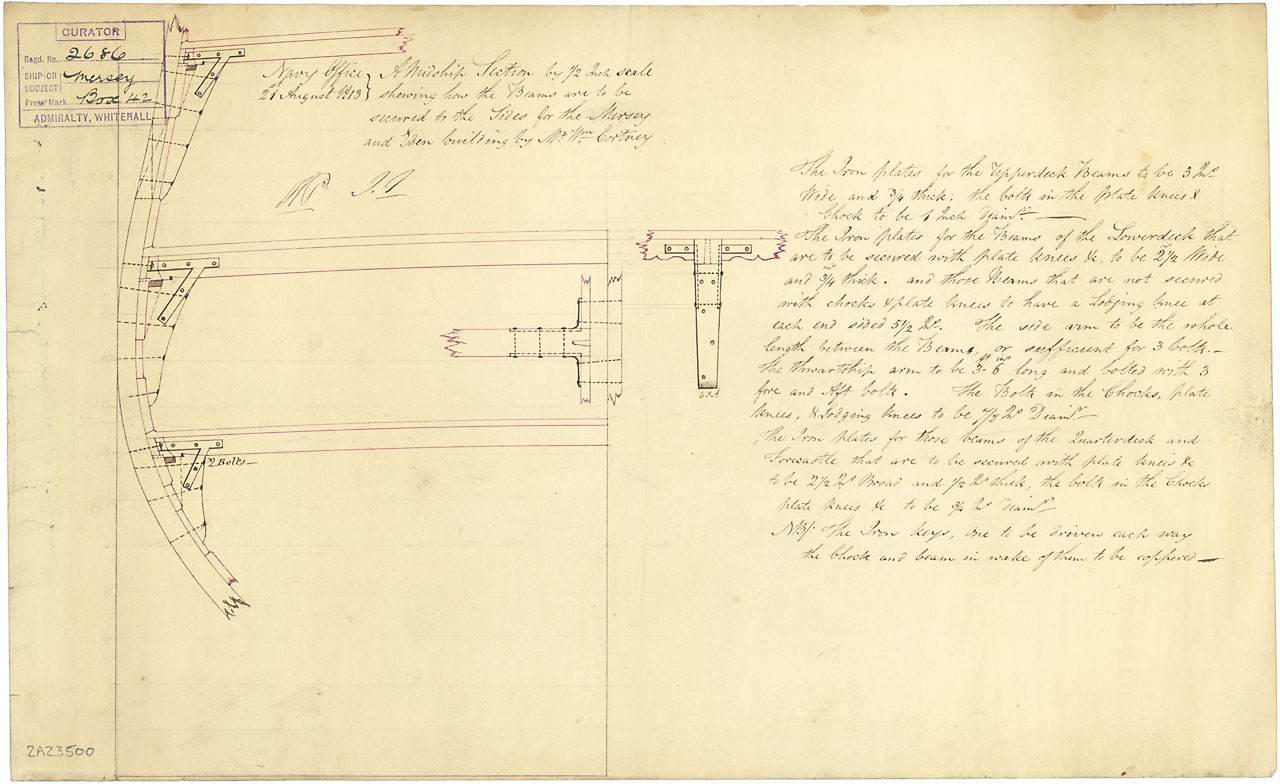 CURATOR
Regd. No. 2686
SHIP OR SUBJECT Mersey
Press Mark Box 42
ADMIRALTY, WHITEHALL
Navy Office } A Midship Section by 1/2 Inch scale
21st August 1813 } shewing how the Beams are to be
secured to the Sides for the Mersey
and Eden building by Mr. Wm. Cortney
The Iron plates for the Upperdeck Beams to be 3 Ins
Wide and 3/4 thick: the bolts in the plate knees &
Chock to be 1 Inch Diamr.
The Iron plates for the Beams of the Lowerdeck that
are to be secured with plate knees &c, to be 2 1/2 Wide
and 3/4 thick. and those Beams that are not secured
with chocks & plate knees to have a Lodging knee at
each end sided 5 1/2 Ins. The side arm to be the whole
length between the Beams, or sufficient for 3 bolts.
The thwartship arm to be 3ft 6ins long and bolted with 3
fore and Aft bolts. The Bolts in the Chocks, plate
knees, & Lodging knees to be 7/8 Ins Diamr.
The Iron plates for those beams of the Quarterdeck and
Forecastle that are to be secured with plate knees &c
to be 2 1/2 Ins Broad and 1/2 Ins thick, the bolts in the Chocks
plate knees &c to be 3/4 Ins Diamr.
NB/. The Iron keys, one to be driven each way
the Chock and beam in wake of them to be coppered
2 Bolts
ZAZ3500